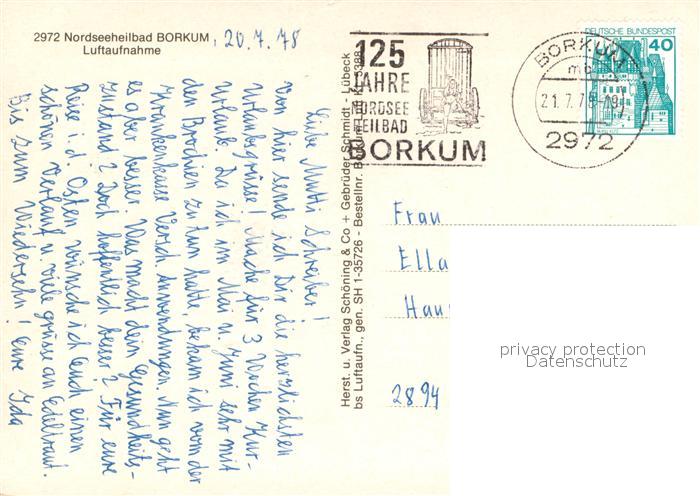 2972 Nordseeheilbad BORKUM
Luftaufnahme
, 20.7.78
Liebe Mutti Schreiber!
Von hier sende ich Dir die herzlichsten
Urlaubsgrüsse! Mache für 3 Wochen Kur-
Urlaub. Da ich im Mai u. Juni sehr mit
den Brochien zu tun hatte, bekam ich von der
Krankenkasse Versch. Anwendungen. Nun geht
es aber besser. Was macht dein Gesundheits-
zustand? Doch hoffentlich besser? Für eure
Reise i. d. Osten wünsche ich Euch einen
schönen Verlauf u. viele grüsse an Edeltraut.
Bis zum Wiedersehn! Eure Ida
Herst. u. Verlag Schöning & Co + Gebrüder Schmidt - Lübeck
bs Luftaufn., gen. SH 1-35726 - Bestellnr. Borkum
125
JAHRE
NORDSEE
HEILBAD
BORKUM
BORKUM
21.7.78
2972
DEUTSCHE BUNDESPOST
40
Frau
Ella
Hau
2894
privacy protection
Datenschutz